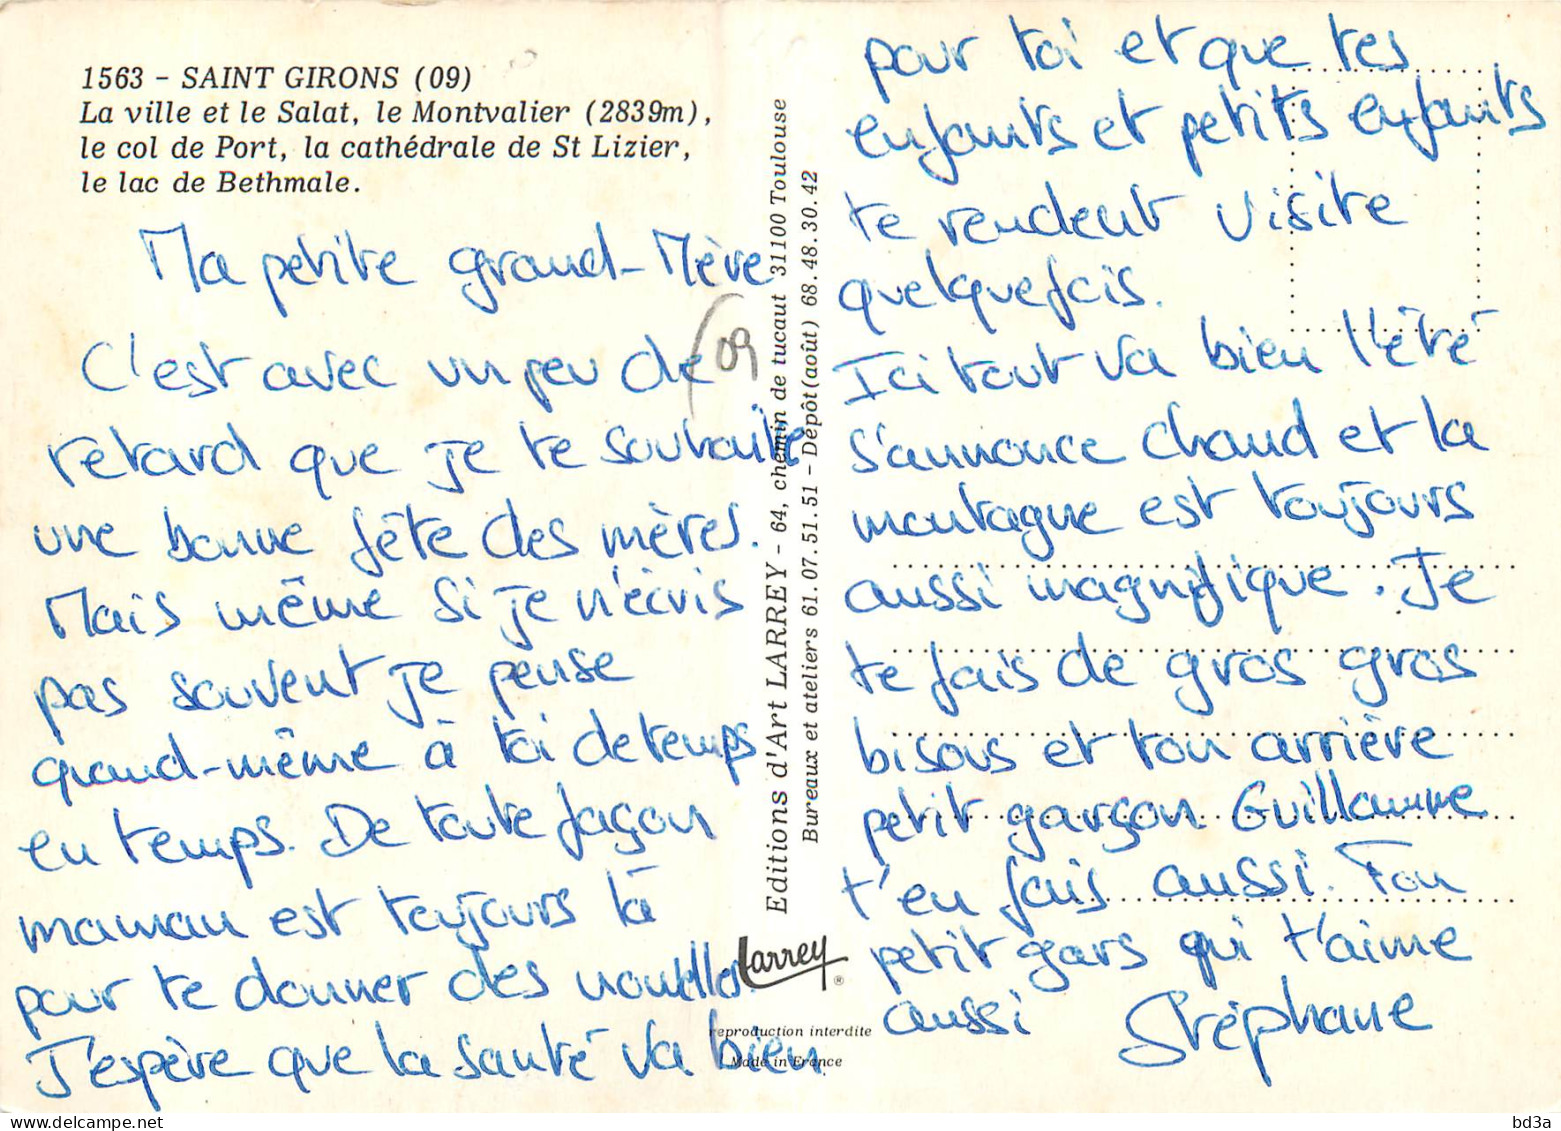 1563 - SAINT GIRONS (09)
La ville et le Salat, le Montvalier (2839m),
le col de Port, la cathédrale de St Lizier,
le lac de Bethmale.
Ma petite grand-Mère
C'est avec un peu de
retard que je te souhaite
une bonne fête des mères.
Mais même si je n'écris
pas souvent je pense
quand-même à toi de temps
en temps. De toute façon
maman est toujours là
pour te donner des nouvelles.
J'espère que la santé va bien
(09
Editions d'Art LARREY - 64, chemin de tucaut 31100 Toulouse
Bureaux et ateliers 61.07.51.51 - Dépôt (août) 68.48.30.42
Larrey
®
reproduction interdite
Made in France
pour toi et que tes
enfants et petits enfants
te rendent visite
quelquefois.
Ici tout va bien l'été
s'annonce chaud et la
montagne est toujours
aussi magnifique. Je
te fais de gros gros
bisous et ton arrière
petit garçon Guillaume
t'en fais aussi. Ton
petit gars qui t'aime
aussi Stéphane
delcampe.net
bd3a